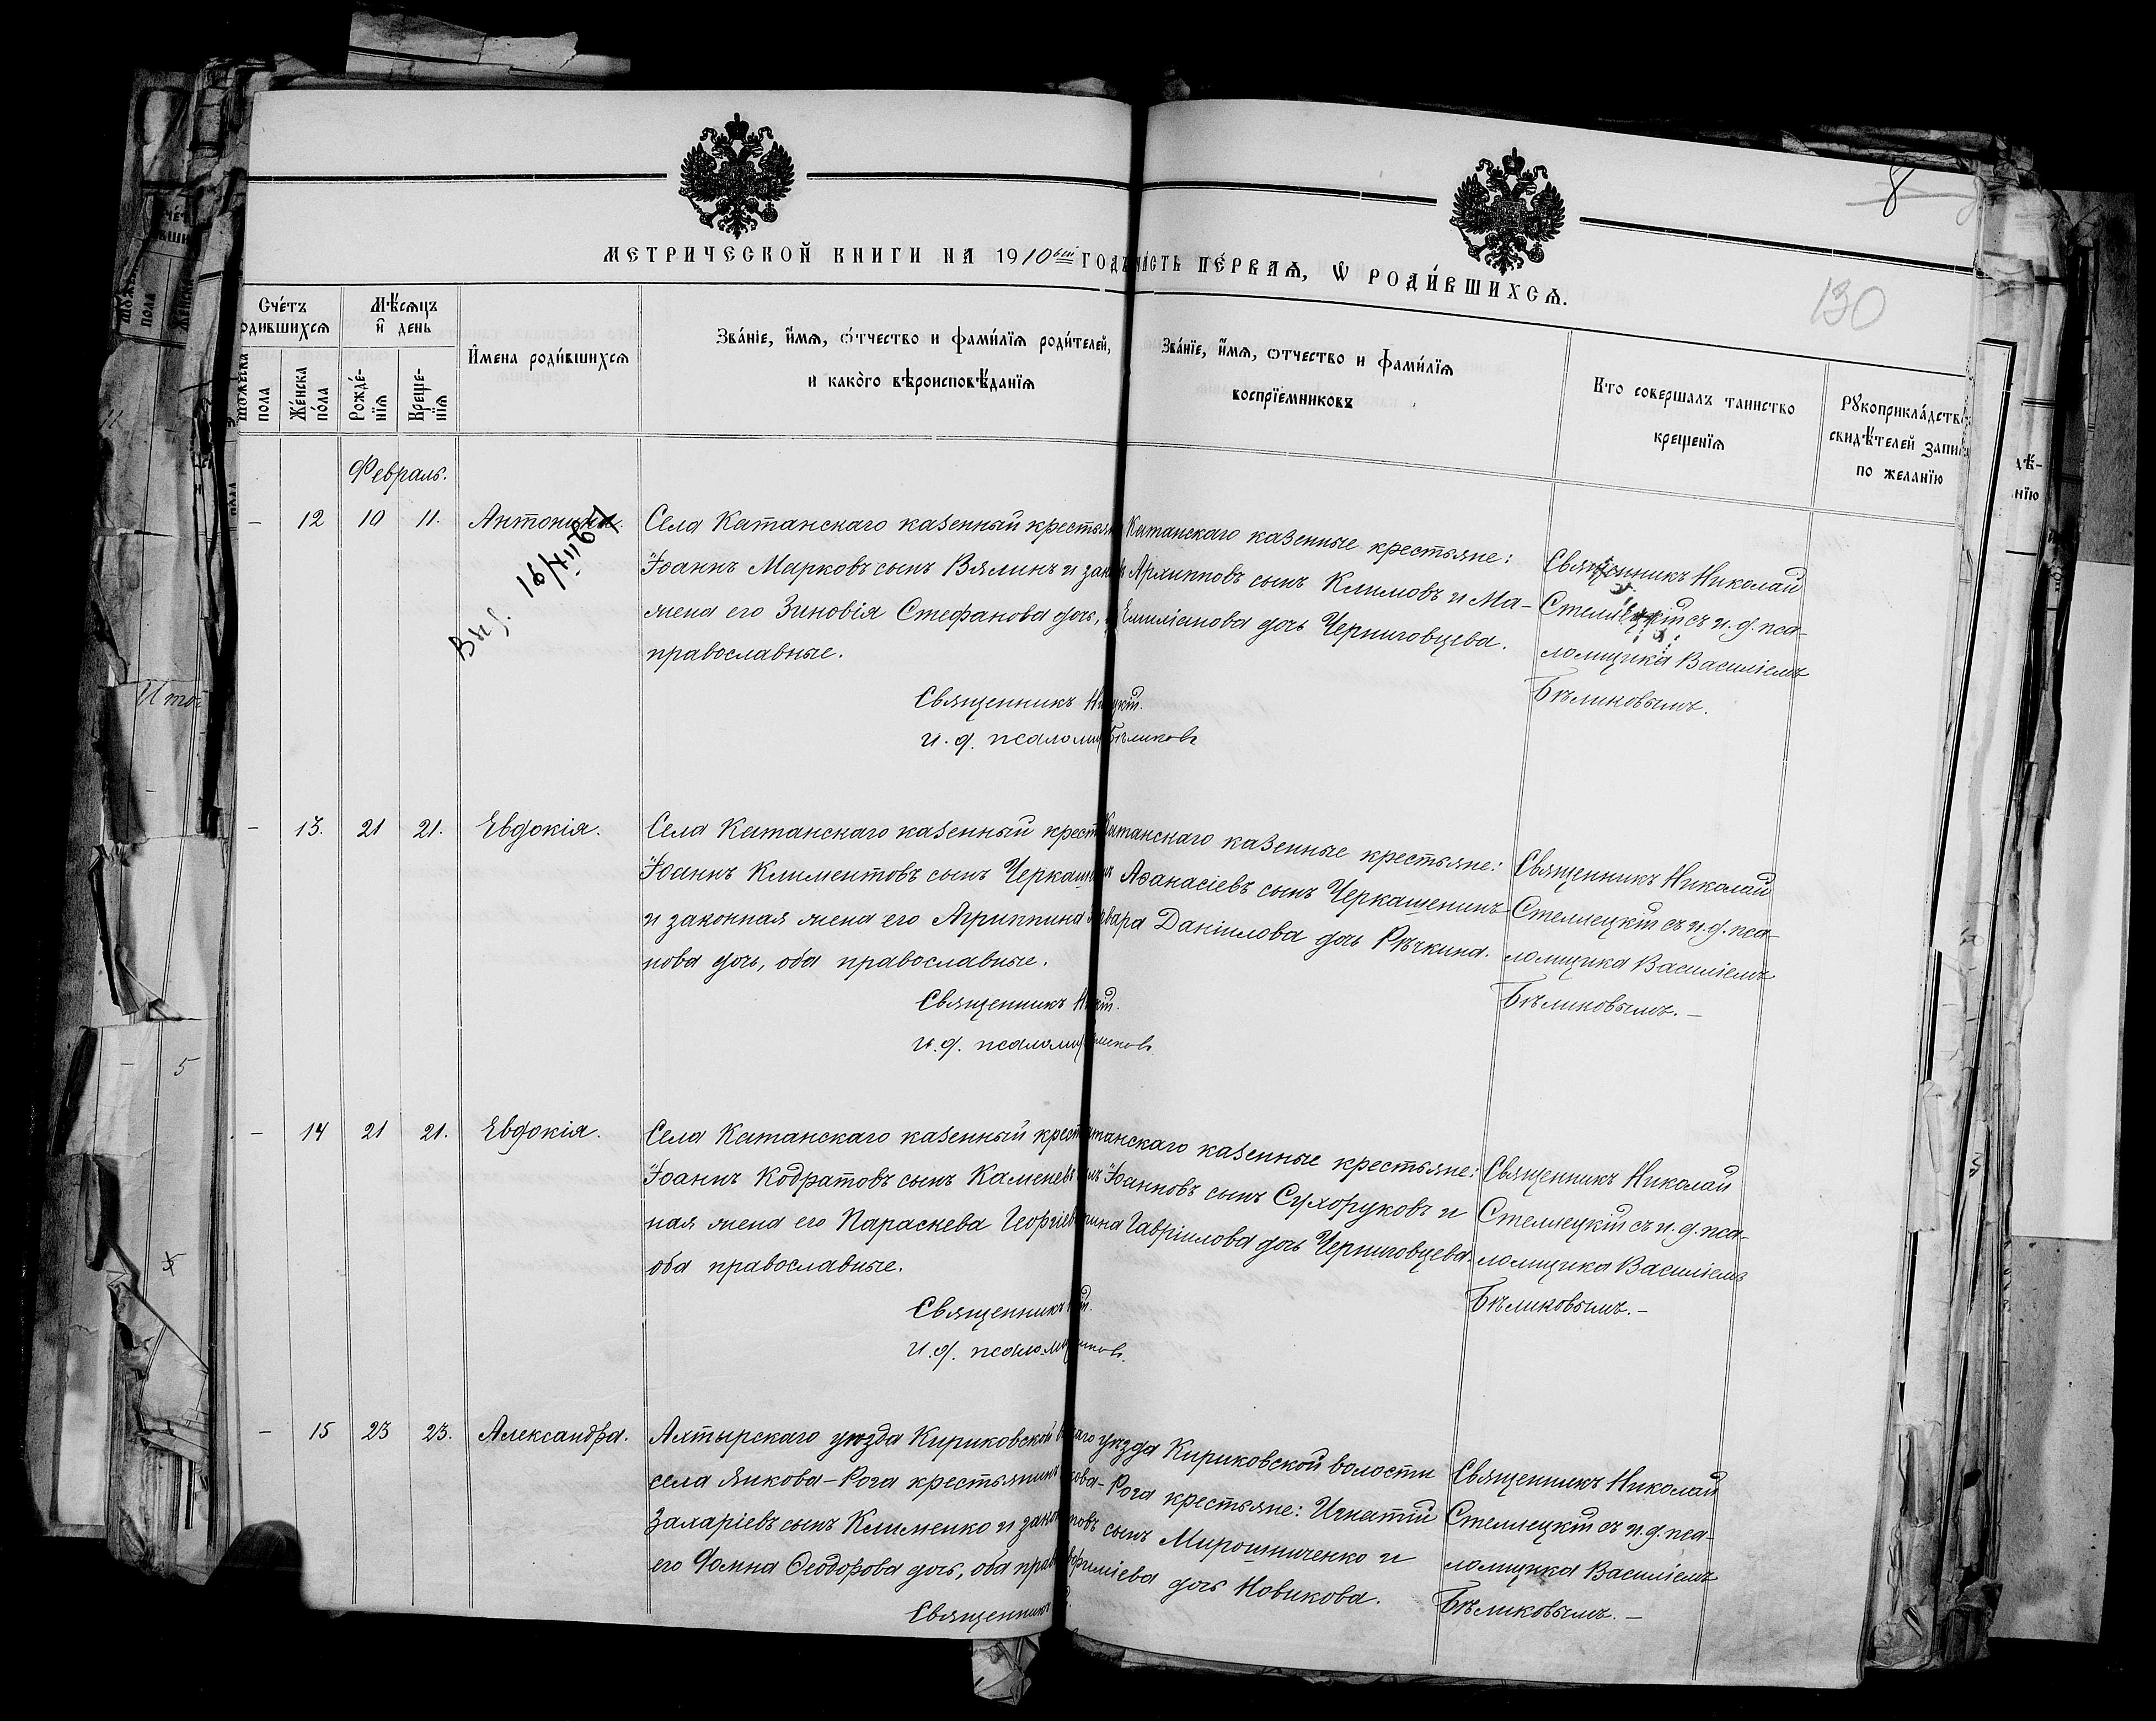 8
130
МЕТРИЧЕСКОЙ КНИГИ НА 1910ый ГОДЪ ЧАСТЬ ПЕ́РВАѦ, Ѡ РОДИ́ВШИХСѦ.
Сче́тъ
родившихсѧ
Мѣ́сѧцъ
и҆ день
Мꙋжеска
пола
Же́нска
по́ла
Рожде́-
нїѧ
Креще-
нїѧ
И҆мена роди́вшихсѧ
Зва́нїе, и҆́мѧ, ѻ҆́тчество и фами́лїѧ роди́телей,
и како́го вѣроисповѣ́данїѧ
Зва́нїе, и҆́мѧ, ѻ҆тчество и фами́лїѧ
воспрїе́мниковъ
Кто совершалъ таинство
крещенїѧ
Рꙋкоприкла́дств
свидѣ́телей запи
по желанїю
Февраль.
– 12 10 11. Антонина.
16/III 67
Села Катанскаго казенный крестьян
Іоаннъ Марковъ сынъ Вялинъ и закон
жена его Зиновія Стефанова дочь,
православные.
Священникъ Н
и. д. псаломщ
Катанскаго казенные крестьяне:
Архипповъ сынъ Климовъ и Ма-
Емиліанова дочь Черниговцева.
цкій.
Бѣликовъ
Священникъ Николай
Стеллецкій съ и. д. пса-
ломщика Василіемъ
Бѣликовымъ.
– 13. 21 21. Евдокія.
Села Катанскаго казенный крест
Іоаннъ Климентовъ сынъ Черкашен
и законная жена его Агриппина
нова дочь, оба православные.
Священникъ Н
и. д. псаломщ
Катанскаго казенные крестьяне:
Аѳанасіевъ сынъ Черкашенинъ
вара Даніилова дочь Рѣчкина.
кій.
ликовъ
Священникъ Николай
Стеллецкій съ и. д. пса-
ломщика Василіемъ
Бѣликовымъ. –
– 14 21 21. Евдокія.
Села Катанскаго казенный крест
Іоаннъ Кодратовъ сынъ Каменевъ
ная жена его Параскева Георгіев
оба православные.
Священникъ
и. д. псаломщ
танскаго казенные крестьяне:
Іоанновъ сынъ Сухоруковъ и
рина Гавріилова дочь Черниговцева.
ій.
иковъ.
Священникъ Николай
Стеллецкій съ и. д. пса-
ломщика Василіемъ
Бѣликовымъ. –
– 15 23 23. Александра.
Ахтырскаго уѣзда Кириковской в
села Янкова-Рога крестьянинъ
Захаріевъ сынъ Клименко и закон
его Домна Ѳеодорова дочь, оба прав
Священникъ
аго уѣзда Кириковской волости
кова-Рога крестьяне: Игнатій
новъ сынъ Мирошниченко и
фиміева дочь Новикова.
Священникъ Николай
Стеллецкій съ и. д. пса-
ломщика Василіемъ
Бѣликовымъ. –